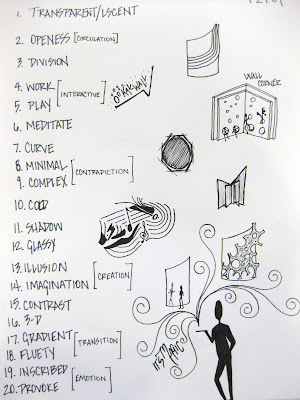 1. TRANSPARENT/LSCENT
2. OPENESS [CIRCULATION]
3. DIVISION
4. WORK
5. PLAY
[INTERACTIVE]
6. MEDITATE
7. CURVE
8. MINIMAL
9. COMPLEX
[CONTRADICTION]
10. COOL
11. SHADOW
12. GLASSY
13. ILLUSION
14. IMAGINATION
[CREATION]
15. CONTRAST
16. 3-D
17. GRADIENT
18. FLUETY
[TRANSITION]
19. INSCRIBED
20. PROVOKE
[EMOTION]
WALL
CORNER
IT'S MAGIC